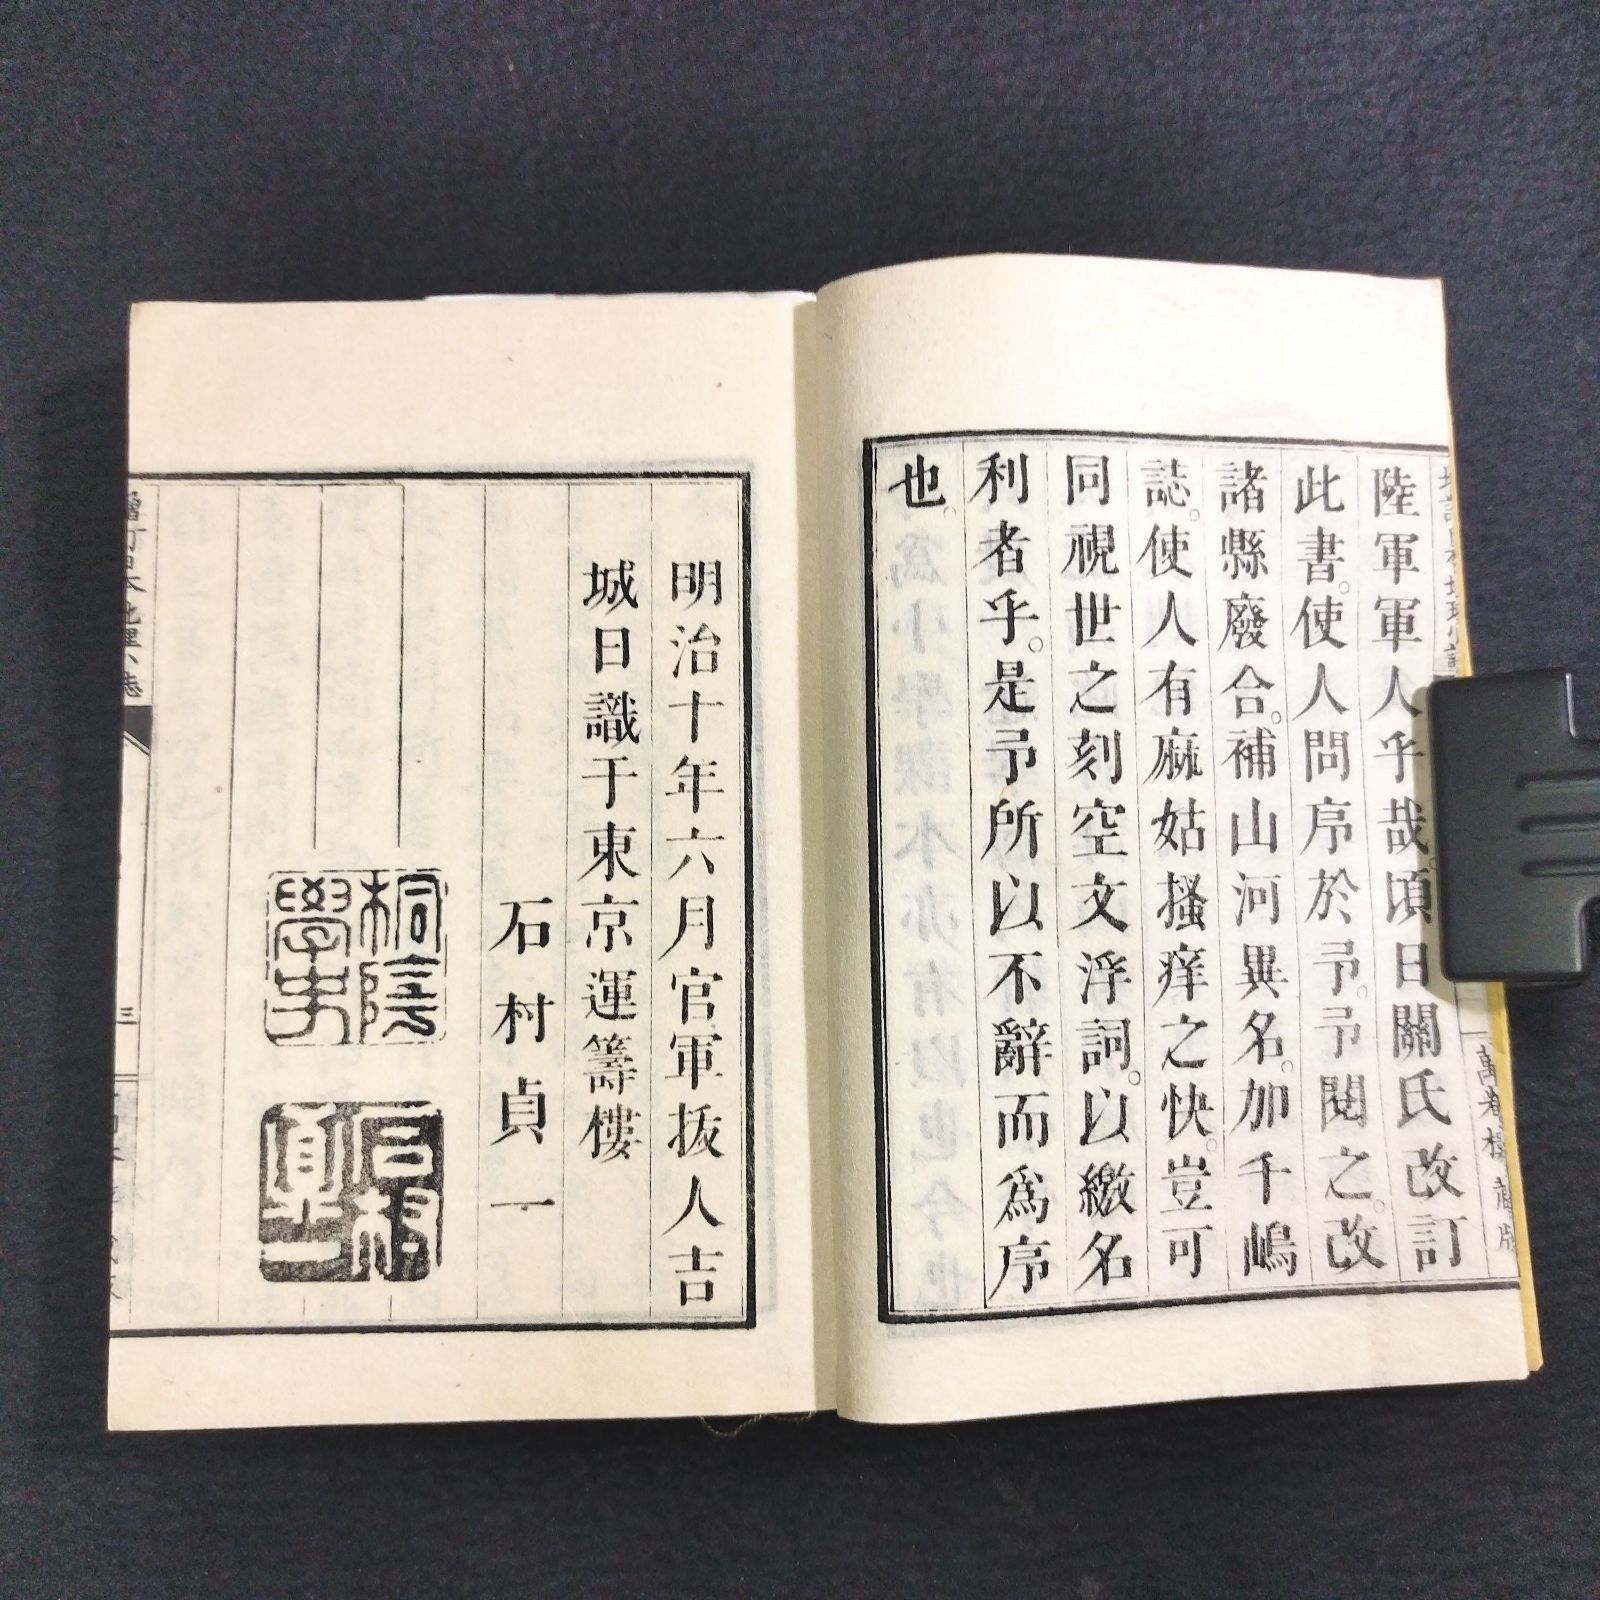 陸軍軍人乎哉。頃日關氏改訂
此書。使人問序於予。予閱之。改
諸縣廢合。補山河異名。加千嶋
誌。使人有麻姑搔痒之快。豈可
同視世之刻空文浮詞。以繳名
利者乎。是予所以不辭而爲序
也。
明治十年六月官軍拔人吉
城日識于東京運籌樓
石村貞一
桐陰
學史
石村
貞一
三